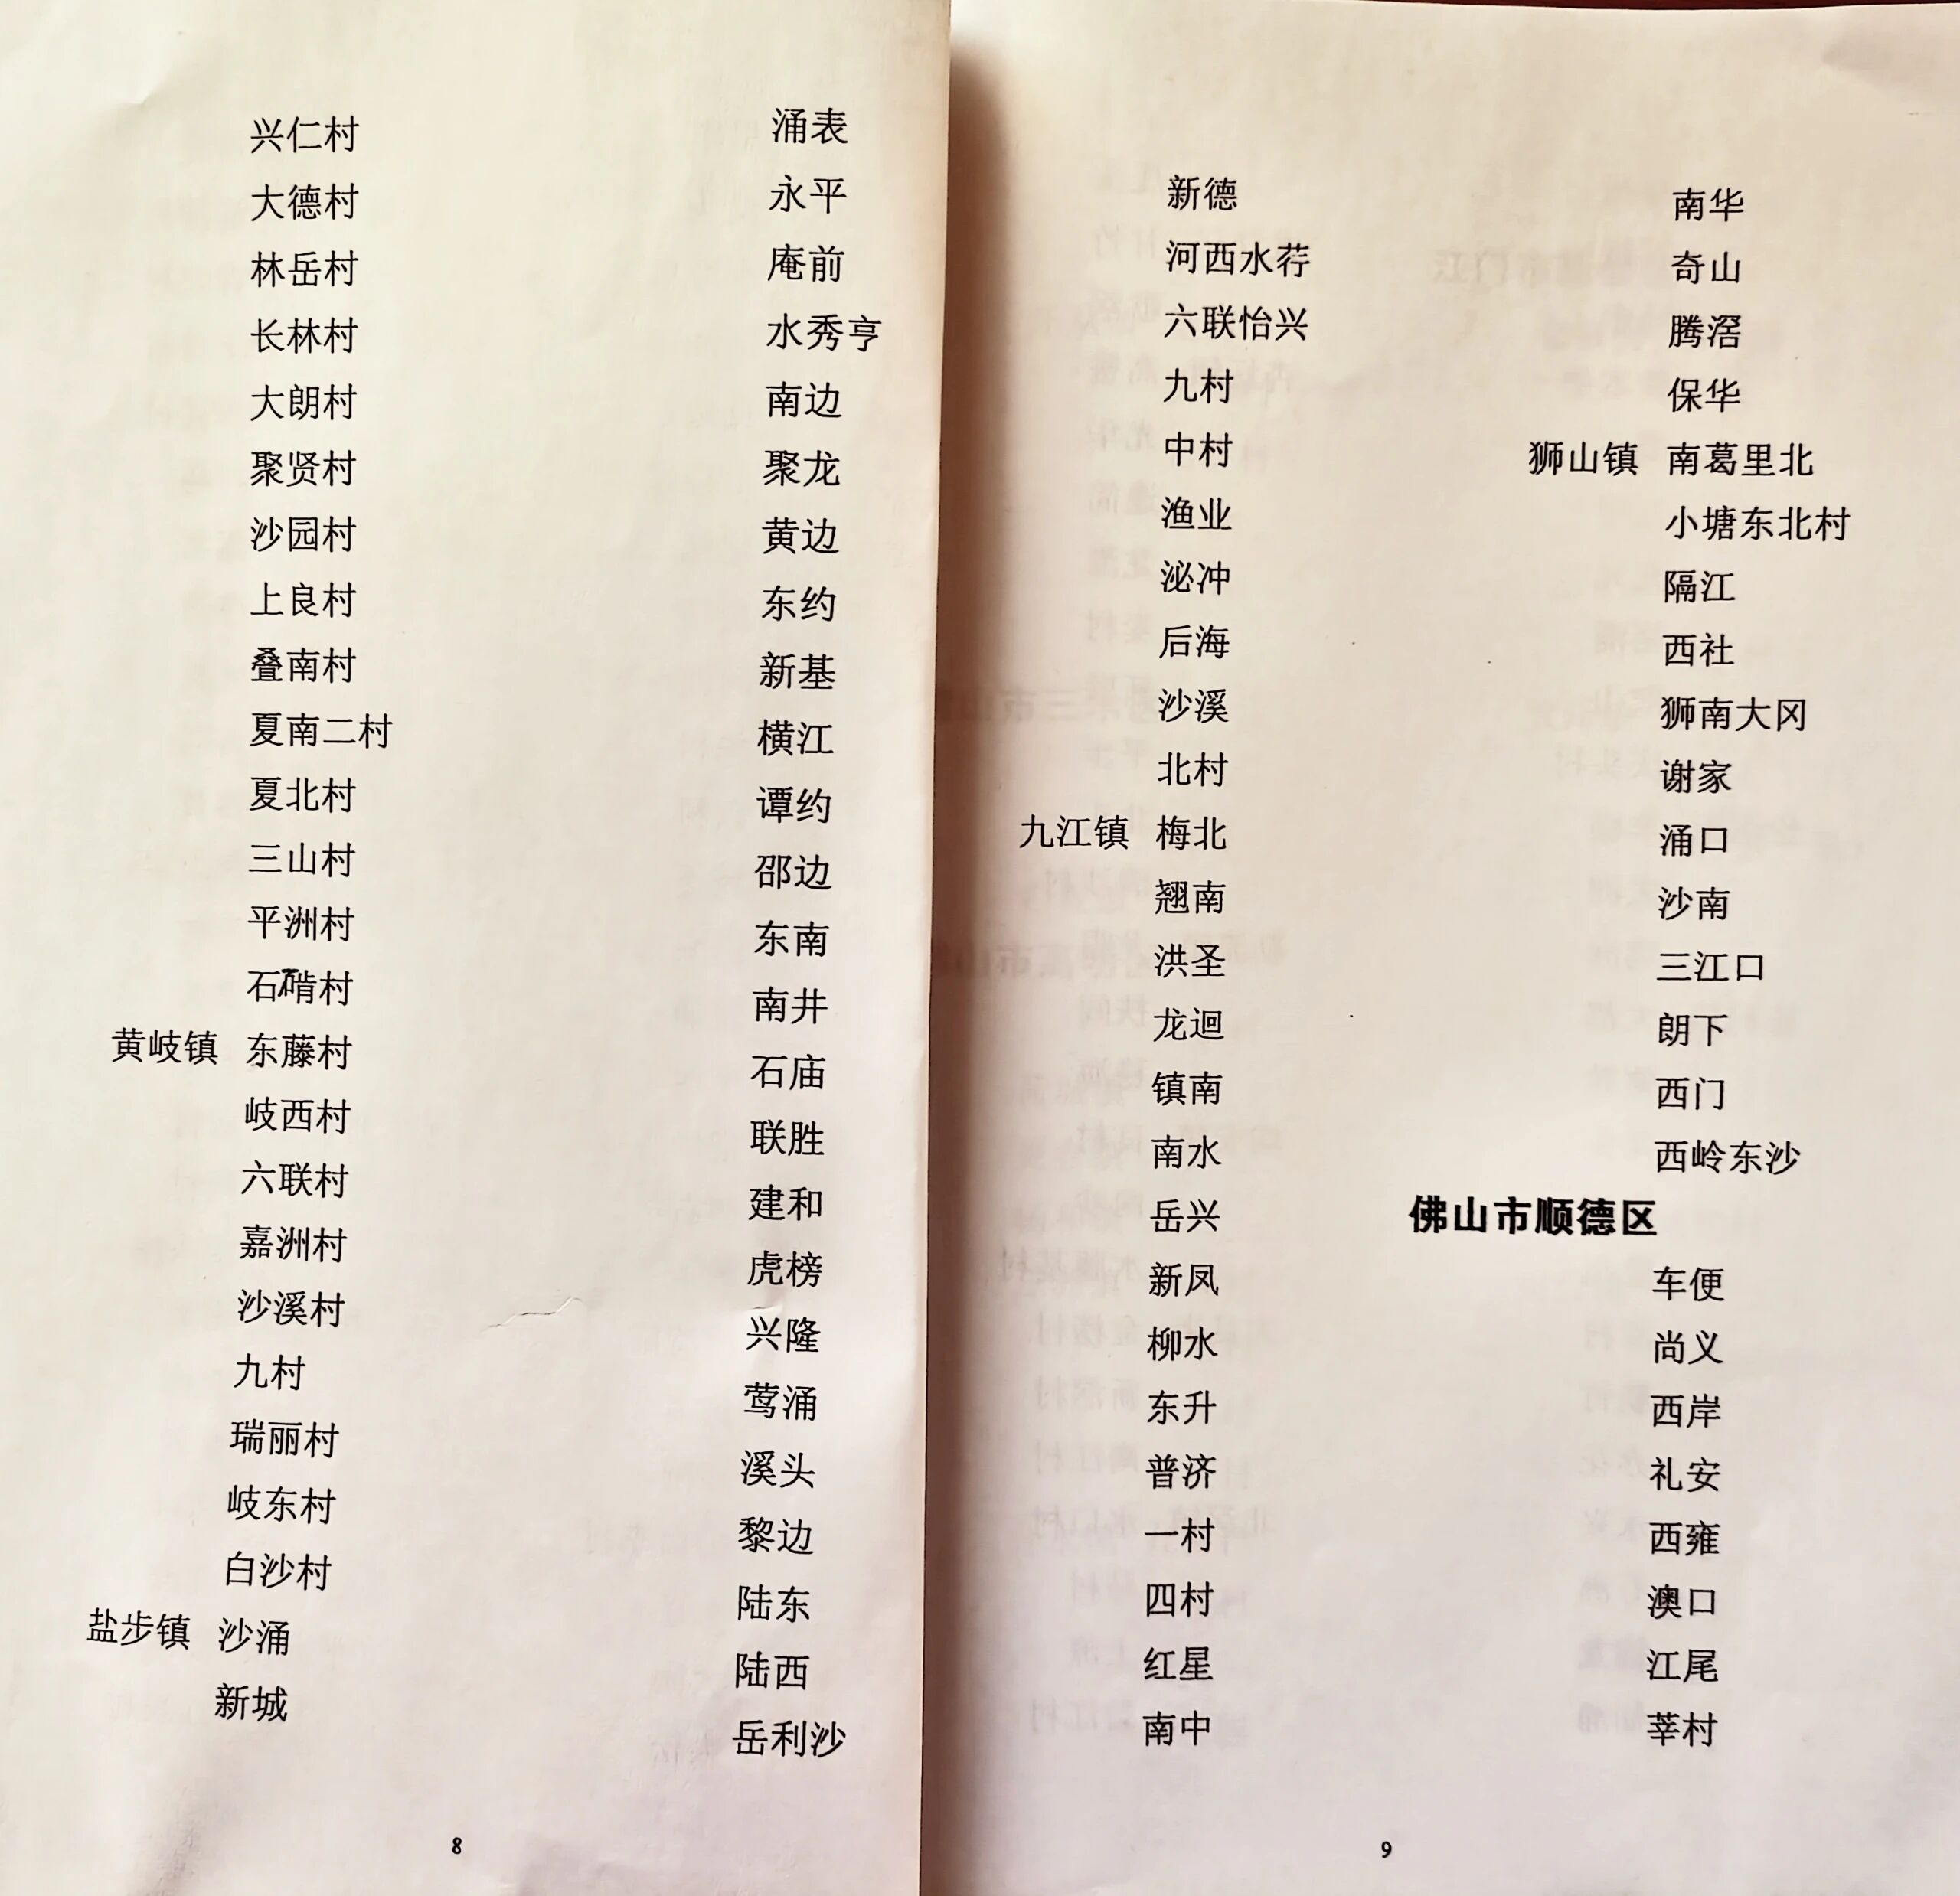 兴仁村
大德村
林岳村
长林村
大朗村
聚贤村
沙园村
上良村
叠南村
夏南二村
夏北村
三山村
平洲村
石䃶村
黄岐镇 东藤村
岐西村
六联村
嘉洲村
沙溪村
九村
瑞丽村
岐东村
白沙村
盐步镇 沙涌
新城
涌表
永平
庵前
水秀亨
南边
聚龙
黄边
东约
新基
横江
谭约
邵边
东南
南井
石庙
联胜
建和
虎榜
兴隆
莺涌
溪头
黎边
陆东
陆西
岳利沙
8
新德
河西水荐
六联怡兴
九村
中村
渔业
泌冲
后海
沙溪
北村
九江镇 梅北
翘南
洪圣
龙迴
镇南
南水
岳兴
新凤
柳水
东升
普济
一村
四村
红星
南中
南华
奇山
腾滘
保华
狮山镇 南葛里北
小塘东北村
隔江
西社
狮南大冈
谢家
涌口
沙南
三江口
朗下
西门
西岭东沙
佛山市顺德区
车便
尚义
西岸
礼安
西雍
澳口
江尾
莘村
9